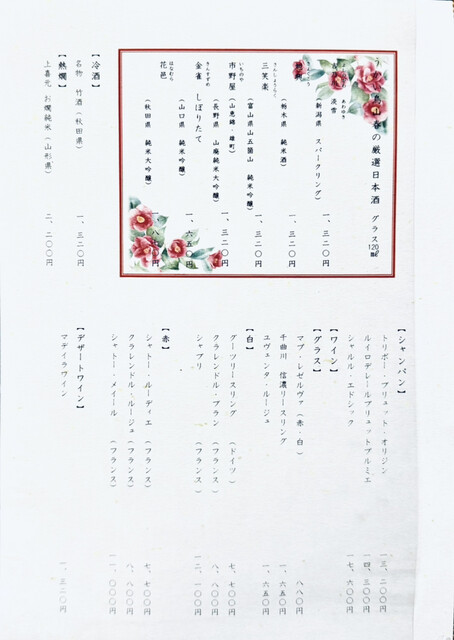 春の厳選日本酒 グラス120㎖
あわゆき
淡雪
(新潟県 スパークリング) 一、三二〇円
(栃木県 純米酒) 一、三二〇円
さんしょうらく
三笑楽
(富山県山五箇山 純米吟醸) 一、三二〇円
いちのや
市野屋(山恵錦・雄町)
(長野県 山廃純米大吟醸) 一、三二〇円
きんすずめ
金雀 しぼりたて
(山口県 純米吟醸) 一、六五〇円
はなむら
花邑
(秋田県 純米大吟醸)
【冷酒】
名物 竹酒(秋田県) 一、三二〇円
【熱燗】
上喜元 お燗純米(山形県) 二、二〇〇円
【シャンパン】
トリボー・ブリュット・オリジン 一三、二〇〇円
ルイロデレールブリュットプルミエ 一四、三〇〇円
シャルル・エドシック 一七、六〇〇円
【ワイン】
【グラス】
マプ・レゼルヴァ(赤・白) 八八〇円
千曲川 信濃リースリング 一、六五〇円
ユヴェンタ・ルージュ 一、六五〇円
【白】
グーツリースリング (ドイツ) 七、七〇〇円
クラレンドル・ブラン (フランス) 八、八〇〇円
シャブリ (フランス) 一二、一〇〇円
【赤】
シャトー・ルーディエ (フランス) 七、七〇〇円
クラレンドル・ルージュ(フランス) 八、八〇〇円
シャトー・メイール (フランス) 一一、〇〇〇円
【デザートワイン】
マデイラワイン 一、三二〇円